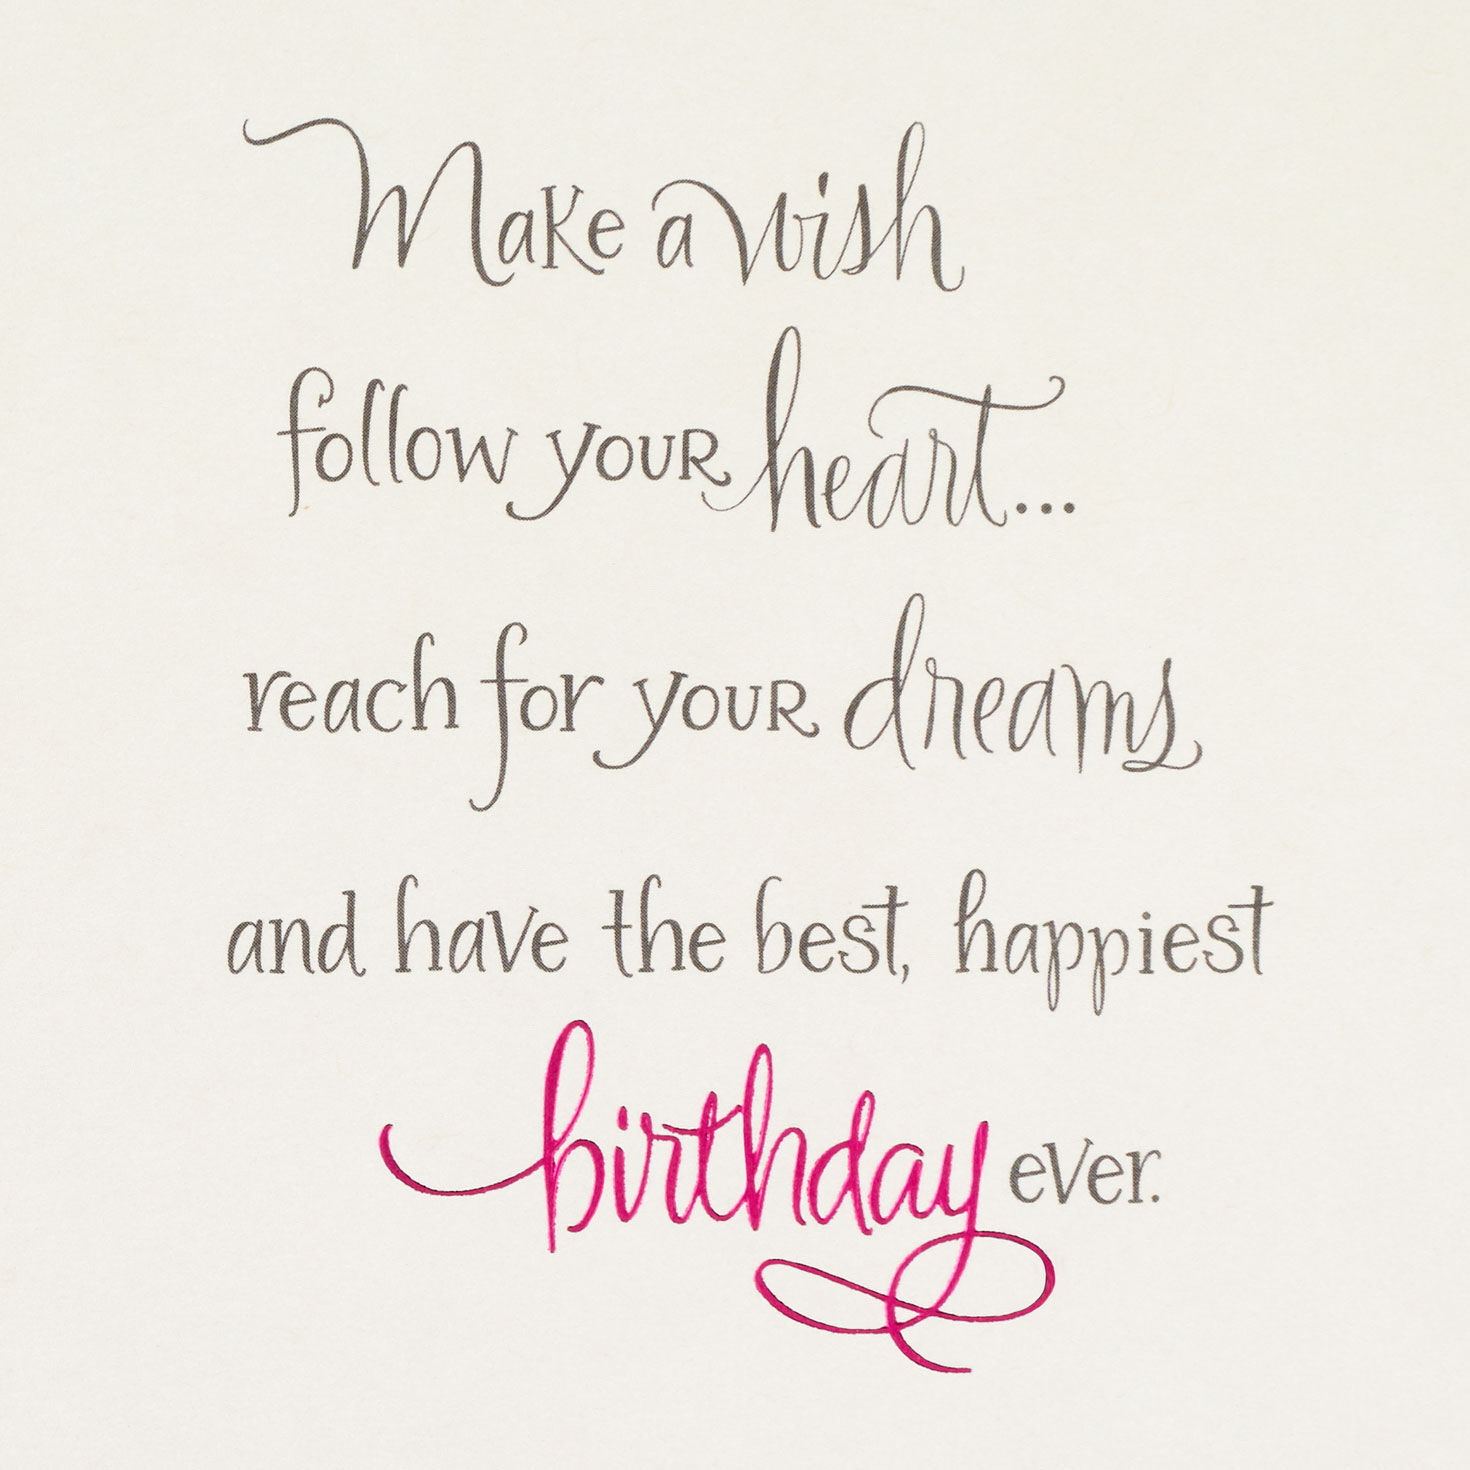 Make a wish
follow your heart...
reach for your dreams
and have the best, happiest
birthday ever.